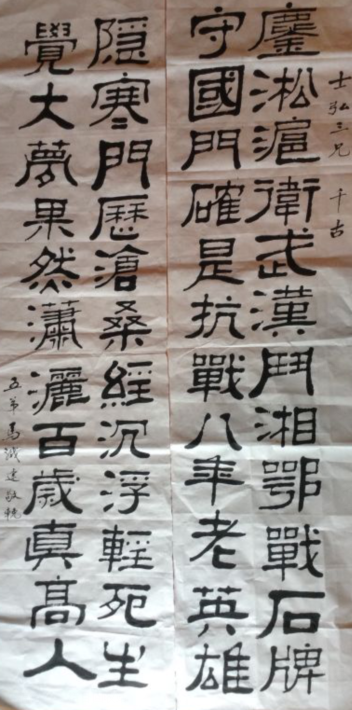 士弘三兄 千古
鏖淞滬衛武漢鬥湘鄂戰石牌
守國門確是抗戰八年老英雄
隐寒門歷滄桑經沉浮輕死生
覺大夢果然瀟灑百歲真髙人
五弟馬誠達敬輓